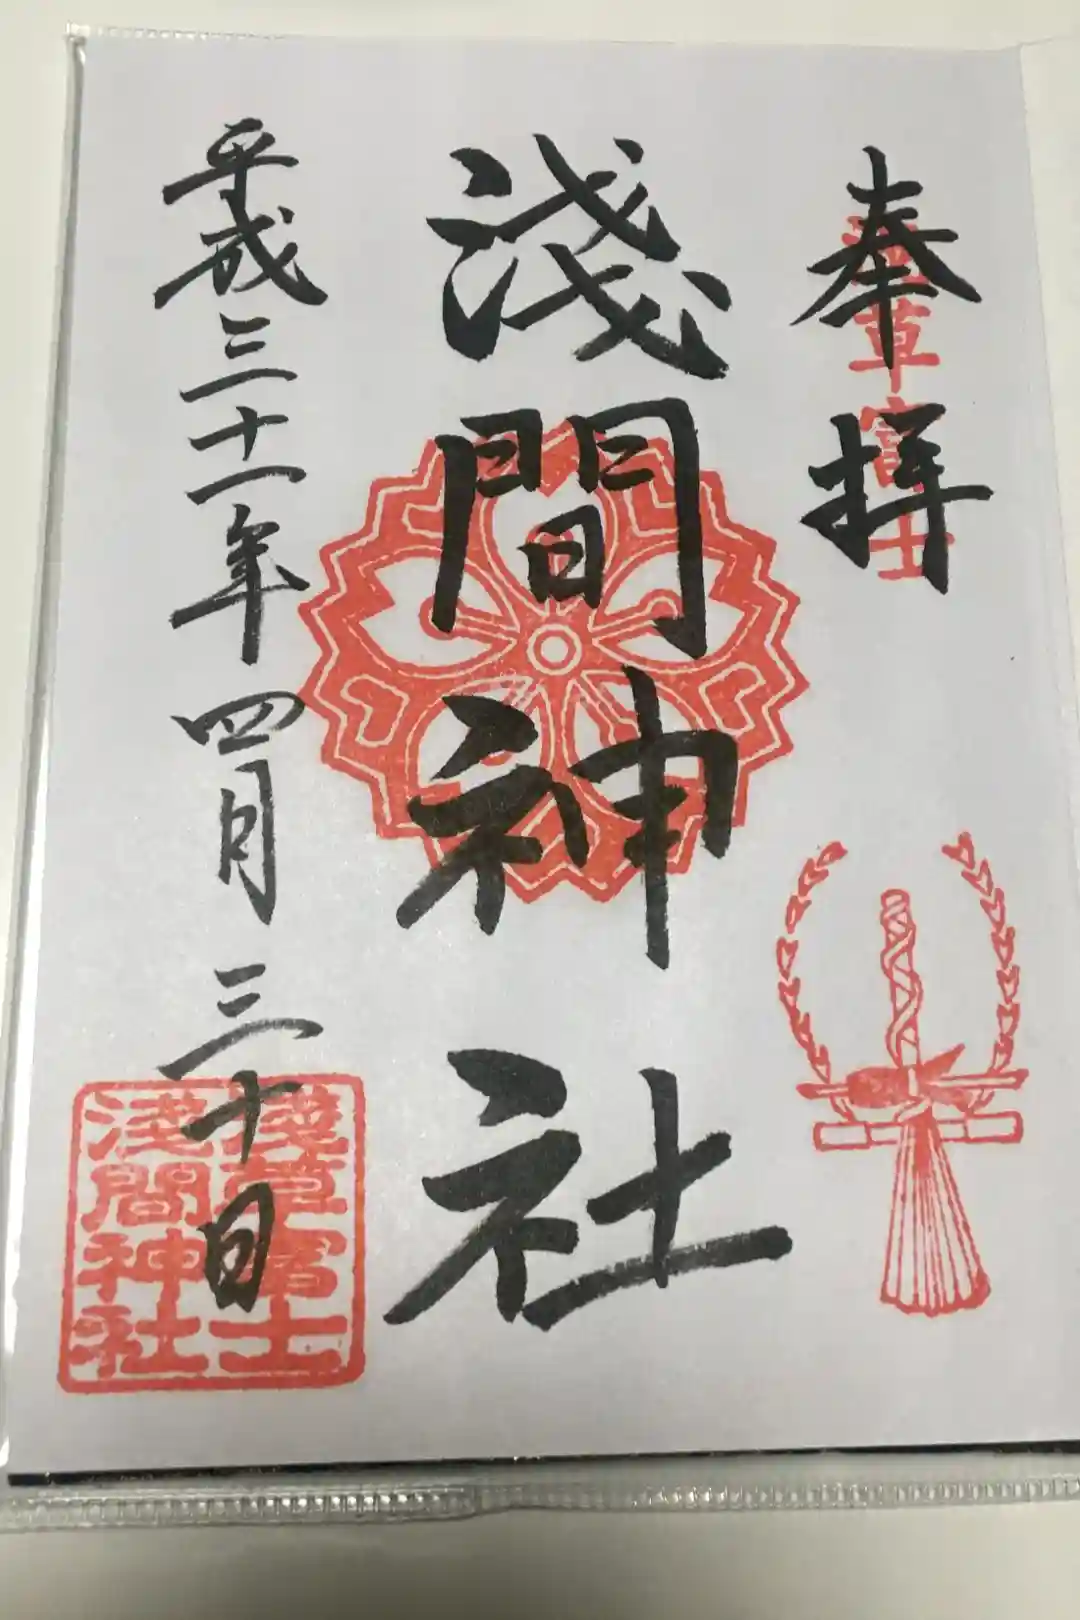 奉拝
淺草富士
淺間神社
平成三十一年四月三十日
淺草富士
淺間神社